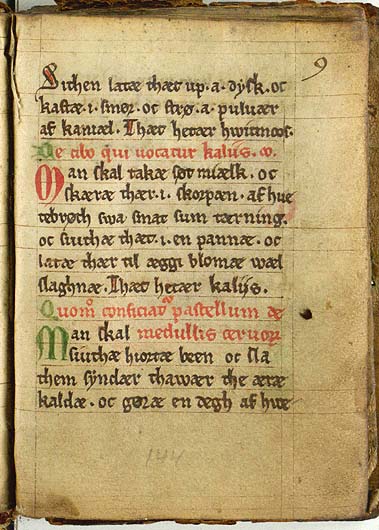 9
Sithen latæ thæt up. a. dysk. oc
kastæ. i. smør. oc strø. a. puluær
af kaniæl. Thæt hetær hwitmoos.
De cibo qui uocatur kaliis. co.
Man skal takæ søt miælk. oc
skæræ thær. i. skorpæn. af hue
tebrøth swa smat sum tærning.
oc siuthæ thæt. i. en pannæ. oc
latæ thær til æggi blomæ wæl
slaghnæ. Thæt hetær kaliis.
Quom̄ conficiat᷑ pastellum de
Man skal medullis ceruoꝝ
siuthæ hiortæ been oc sla
them syndær thawær the æræ
kaldæ. oc gøræ en degh af hue
144